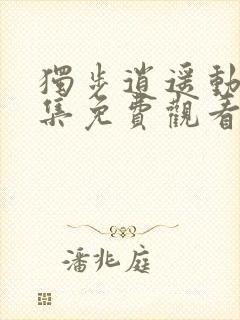 獨步逍遙動
集免費觀看
潘兆庭